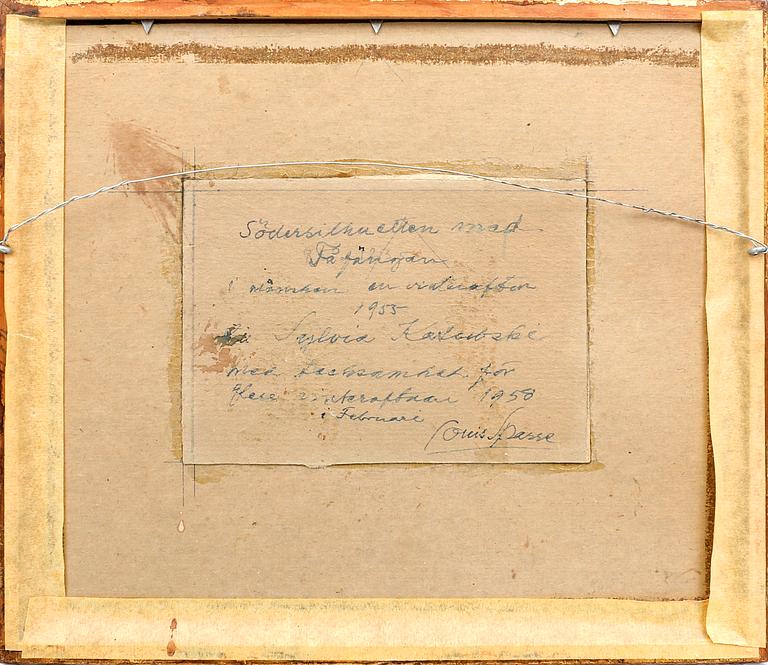 Södersilhuetten med
Fåfängan
i månsken en vinterafton
1955
Till Sylvia
med tacksamhet för
flera vinteraftnar 1958
i Februari
Louis Sparre